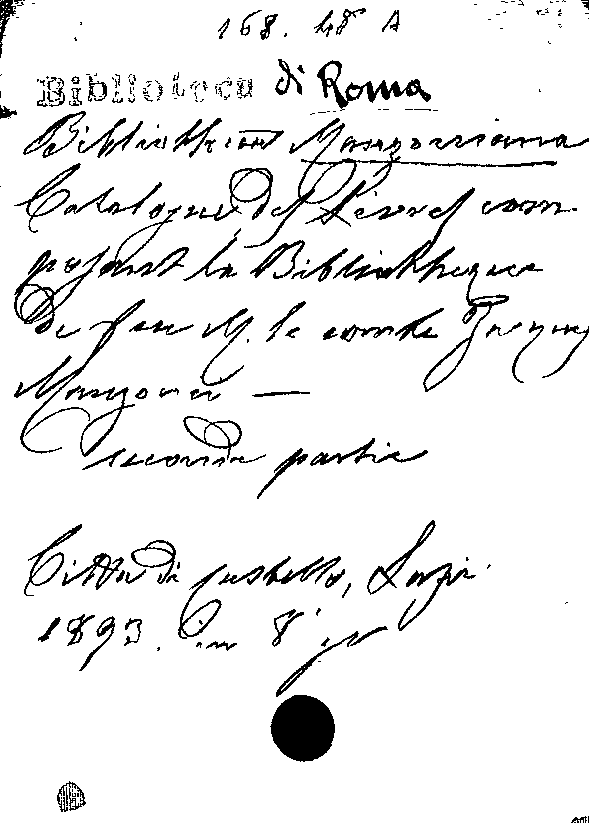 168. 48 A
Biblioteca di Roma
Bibliotheca Manzoniana
Catalogue des Livres com-
posant la Bibliotheque
de feu M. le comte Jacques
Manzoni —
seconde partie
Città di Castello, Lapi.
1893. in 8° gr